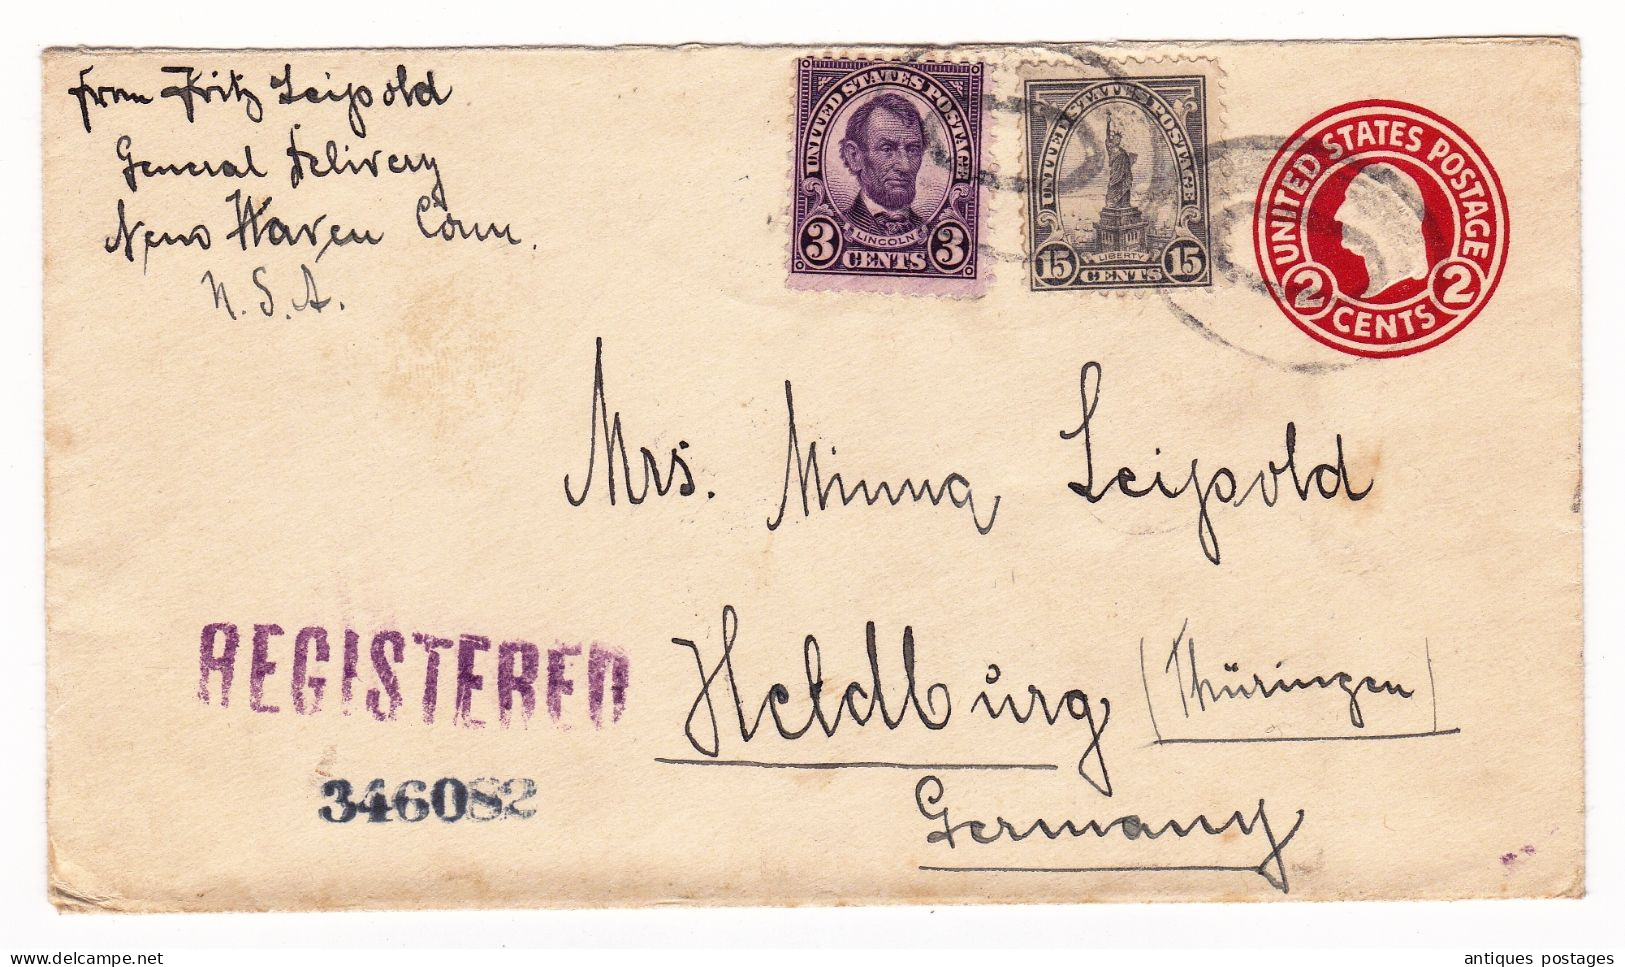 from Fritz Leipold
General Delivery
New Haven Conn.
U.S.A.
UNITED STATES POSTAGE
LINCOLN
3 CENTS 3
UNITED STATES POSTAGE
LIBERTY
15 CENTS 15
UNITED STATES POSTAGE
2 CENTS 2
Mrs. Minna Leipold
REGISTERED
Heldburg (Thüringen)
346082
Germany
antiques postages